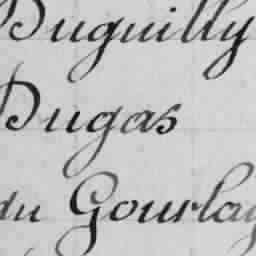 Duguilly
Dugas
du Gourlay